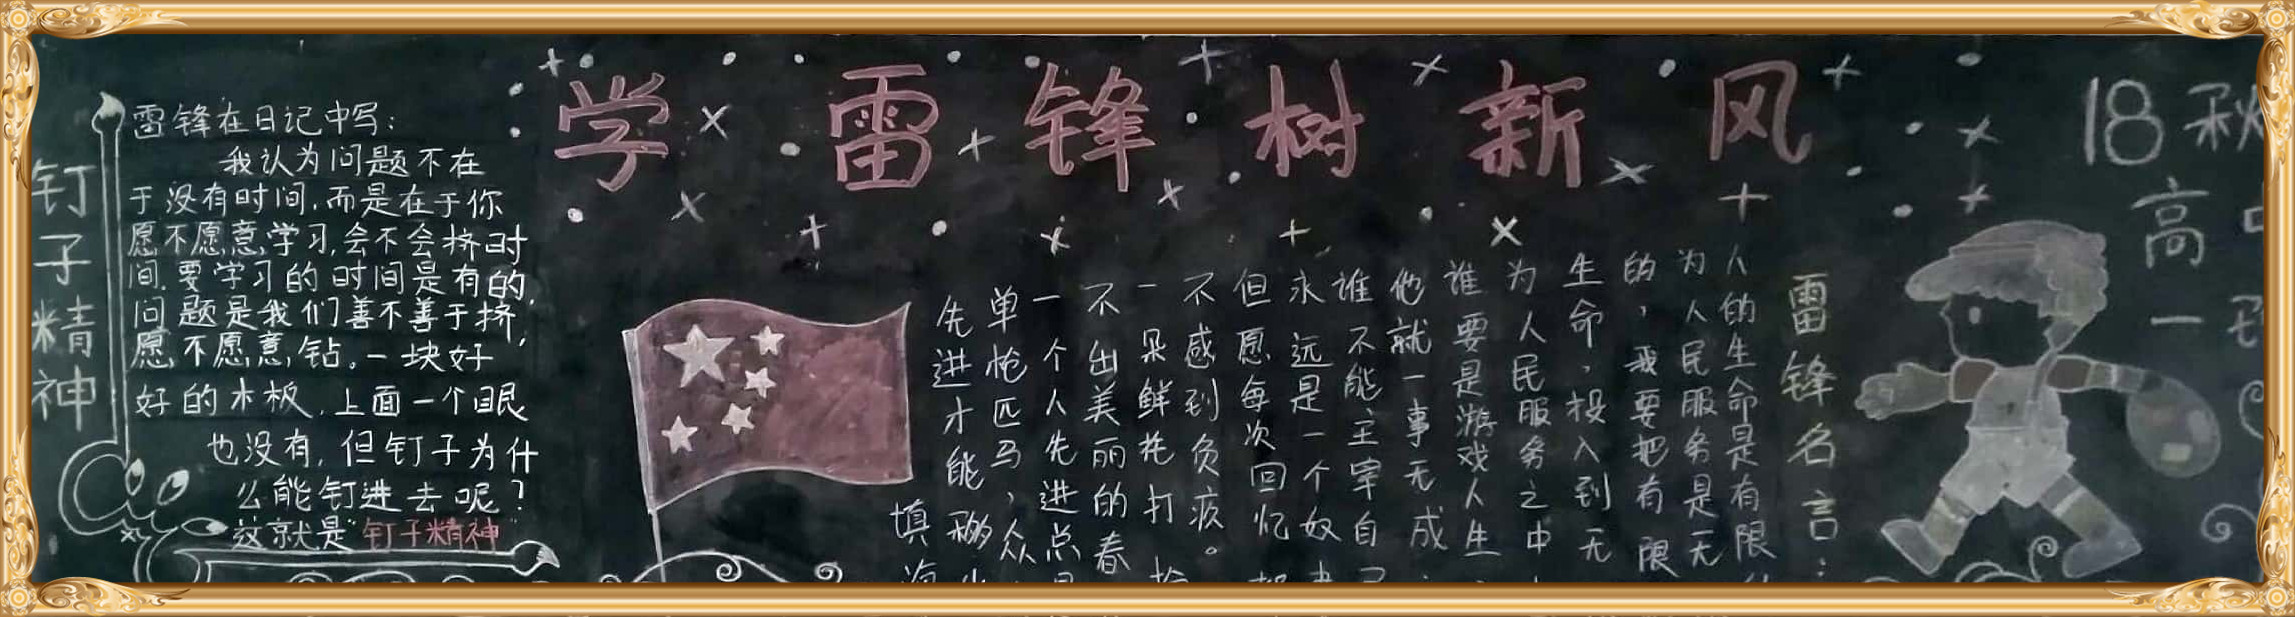 学雷锋树新风
钉子精神
雷锋在日记中写：
我认为问题不在
于没有时间，而是在于你
愿不愿意学习，会不会挤时
间，要学习的时间是有的，
问题是我们善不善于挤，
愿不愿意钻。一块好
好的木板，上面一个眼
也没有，但钉子为什
么能钉进去呢？
这就是“钉子精神”
18秋
高
一
雷锋名言：
人的生命是有限
为人民服务是无
的，我要把有限
生命，投入到无
为人民服务之中
谁要是游戏人生
他就一事无成
谁不能主宰自
永远是一个奴
但愿每次回忆
不感到负疚。
一朵鲜花打
不出美丽的春
一个人先进总
单枪匹马，众
先进才能移
填